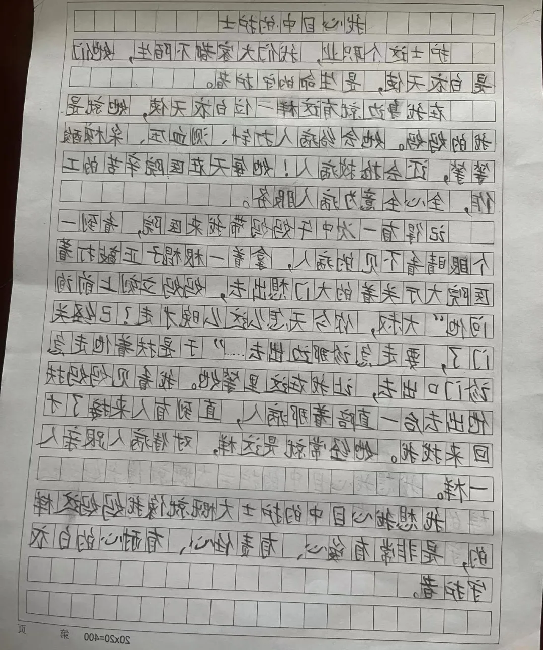 我心目中的护士
护士这个职业，我们大家都不陌生，她们
是白衣天使，是生命的守护者。
在我身边就有这样一位白衣天使，她就是
我的妈妈。她会给病人打针、测血压、采核酸
等等，还会抢救病人！她每天在医院辛苦的工
作，全心全意为病人服务。
记得有一次中午妈妈带我来医院，看到一
个眼睛看不见的病人，拿着一根棍子正敲打着
医院大厅关着的大门想出去，妈妈立刻上前询
问他“大叔，你今天怎么这么晚才走？已经关
门了，要走急诊那边出去……”于是扶着他走急
诊门口出去，让我在这里等他。我看见妈妈扶
他出去后一直陪着那病人，直到有人来接了才
回来找我。她经常就是这样，对待病人跟亲人
一样。
我想我心目中的护士大概就像我妈妈这样
的，是非常有爱心、有责任心、有耐心的白衣
守护者。
20x20=400 第 页